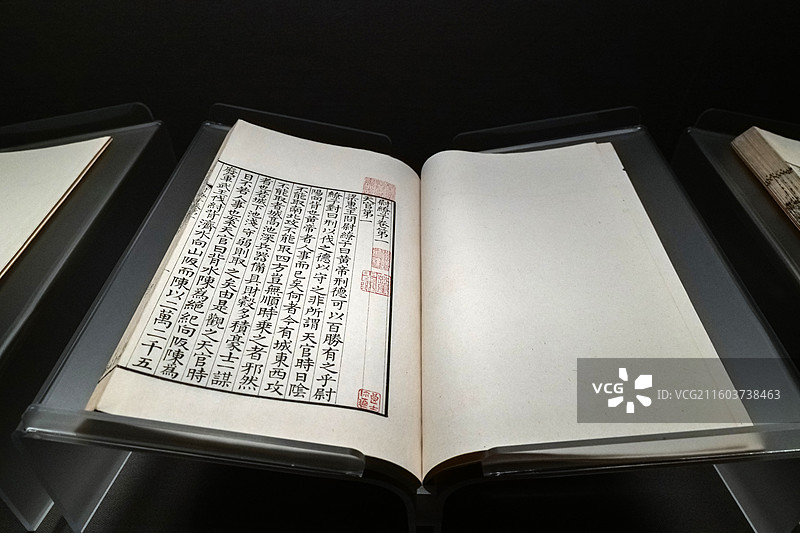 尉繚子卷第一
天官第一
梁惠王問尉繚子曰黃帝刑德可以百勝有之乎尉
繚對曰刑以伐之德以守之非所謂天官時日陰
陽向背也黃帝者人事而已矣何者今有城東西攻
不能取南北攻不能取四方豈無順時乘之者邪然
不能取者城高池深兵器備具財穀多積豪士一謀
者也若城下池淺守弱則取之矣由是觀之天官時
日不若人事也案天官曰背水陳爲絕紀向阪陳爲
廢軍武王伐紂背濟水向山阪而陳以二萬二千五
VCG
ID:VCG211603738463